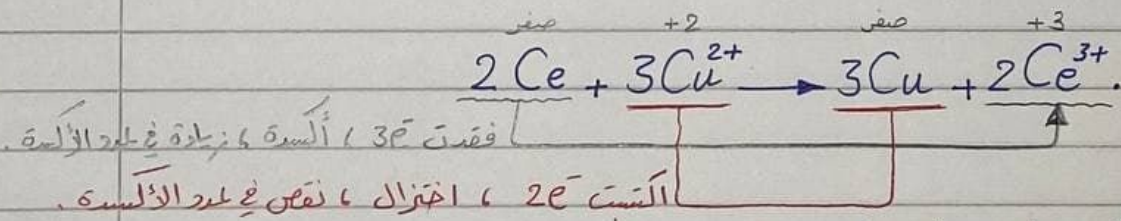 صفر +2 صفر +3
2Ce + 3Cu²⁺ → 3Cu + 2Ce³⁺.
فقدت 3e⁻ ، أكسدة ، زيادة في عدد الأكسدة.
اكتسبت 2e⁻ ، اختزال ، نقص في عدد الأكسدة.